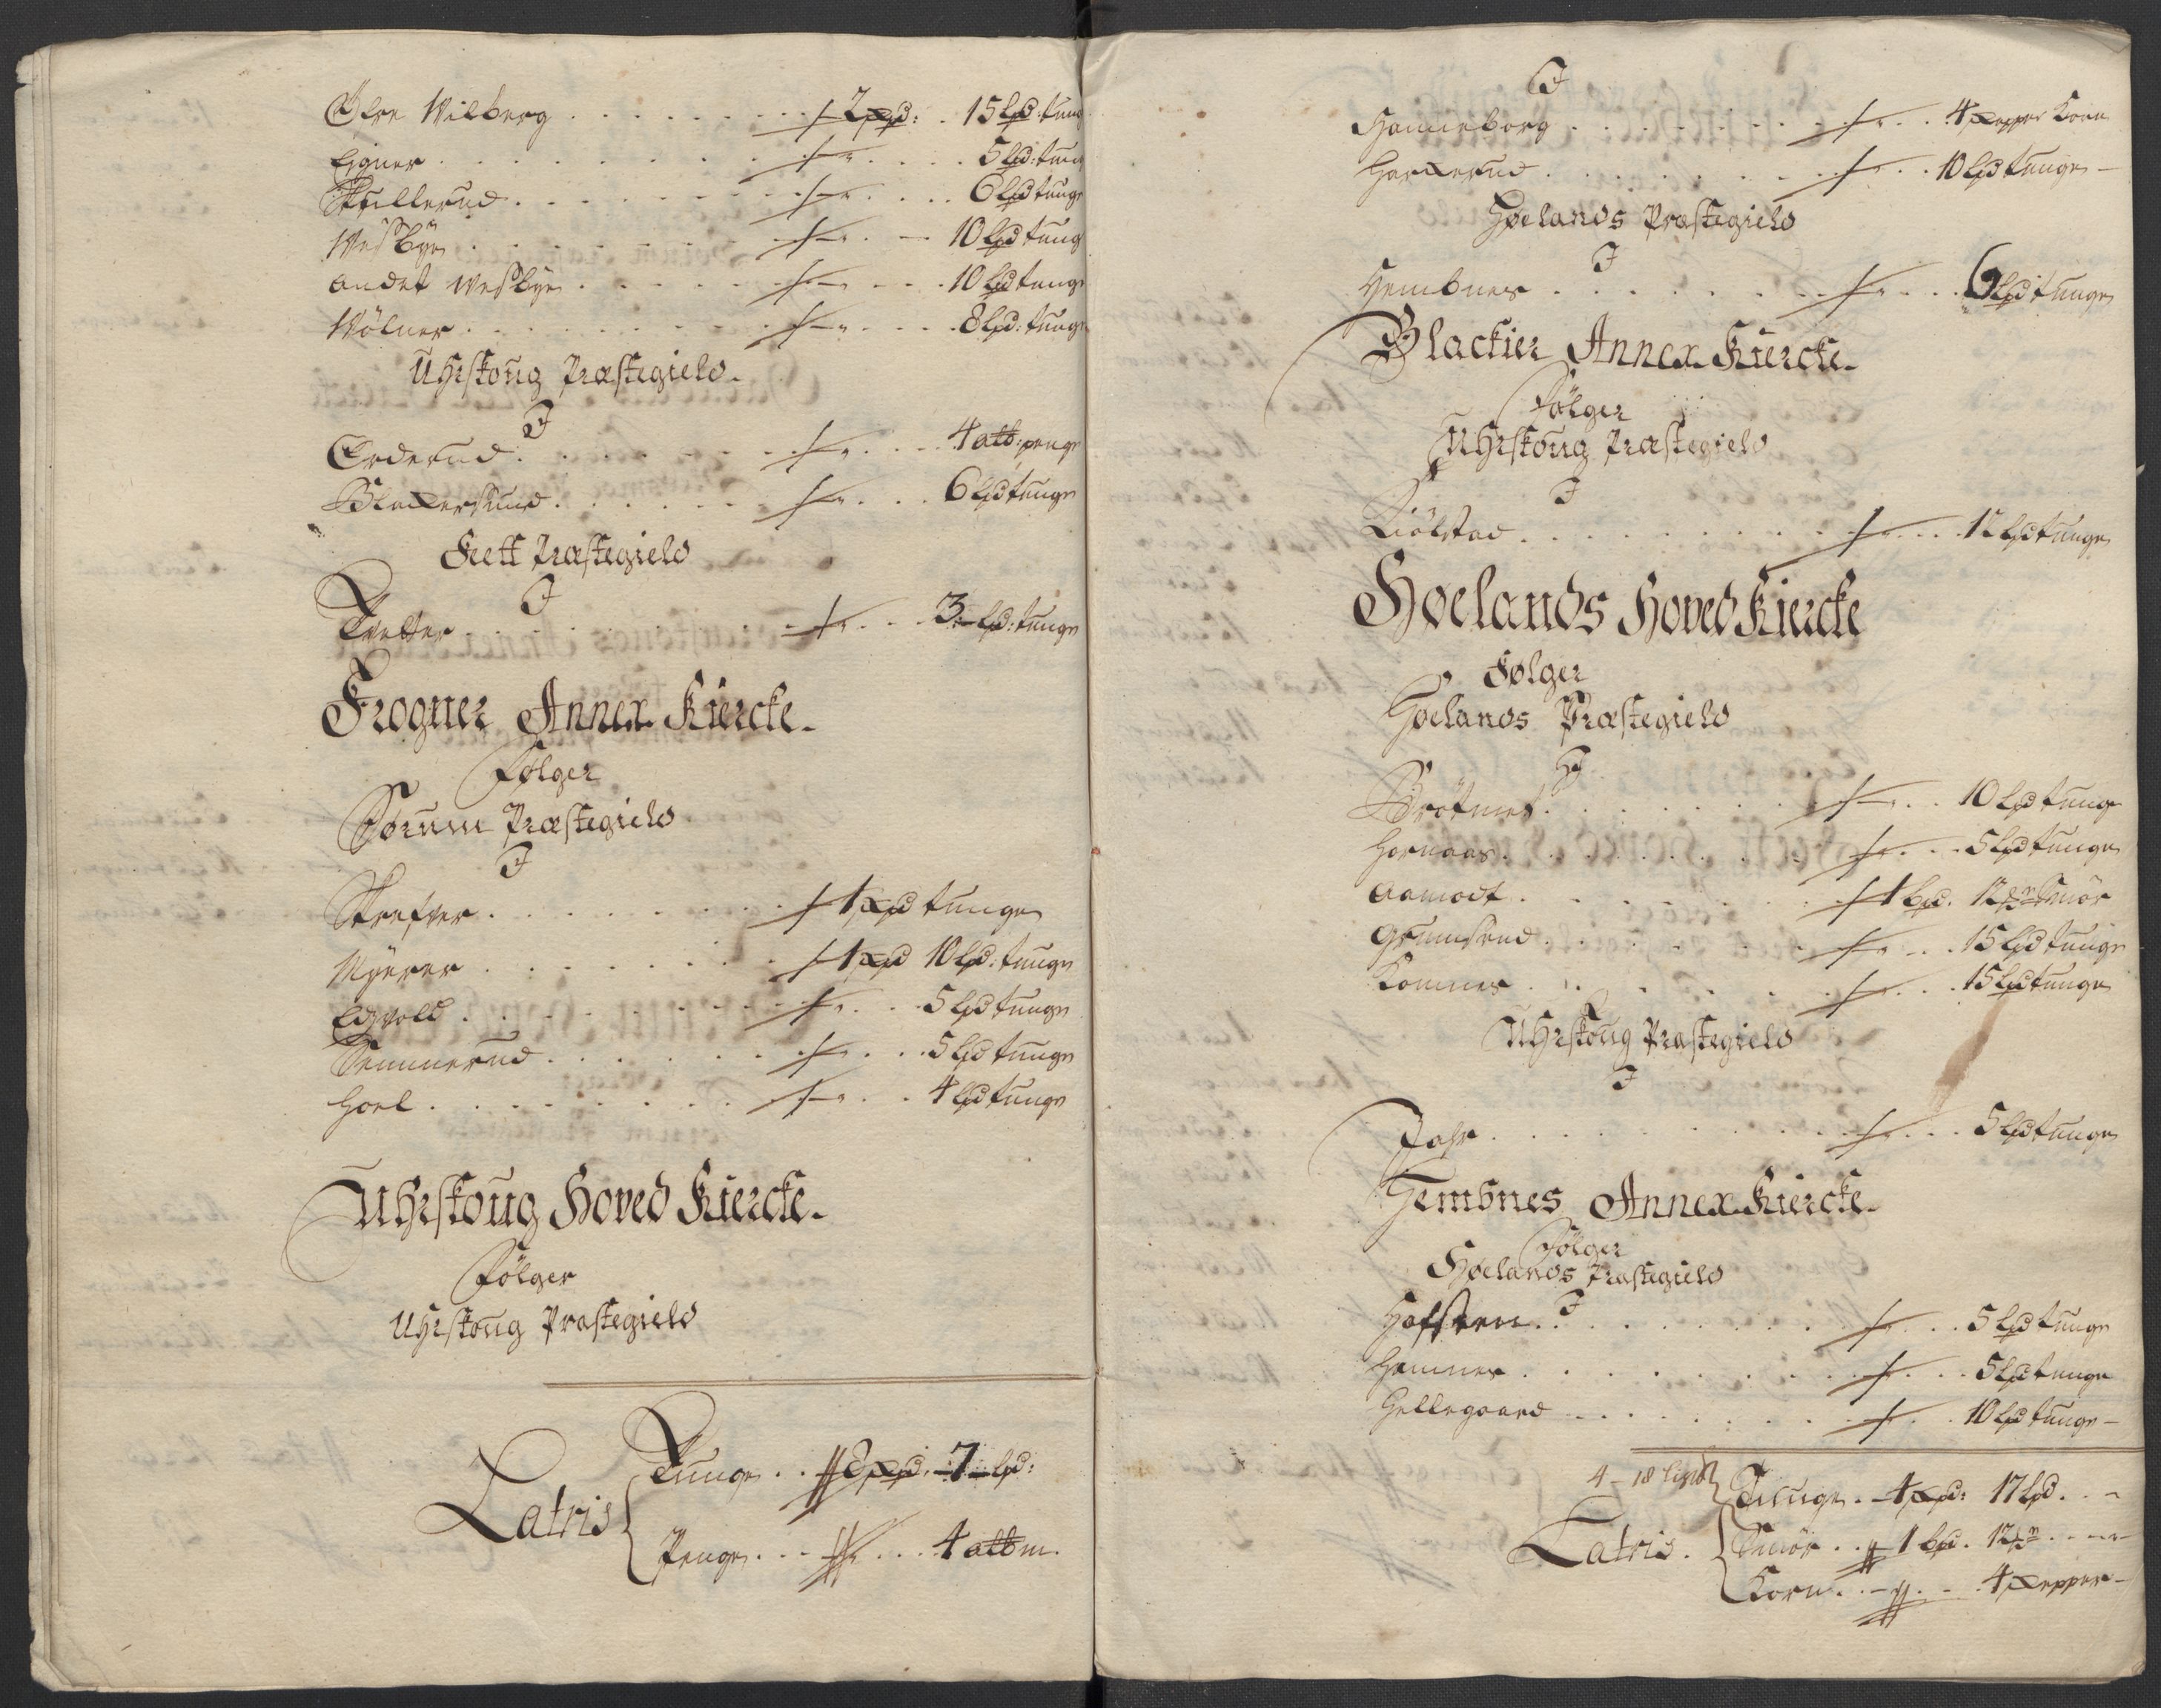 Øfre Wilberg . . . . . . . . 2 xpd: . 15 lpd: tung
Eigner . . . . . . . . . . 5 lpd: tung
Skullerud . . . . . . . . 6 lpd tunge
Wesbye . . . . . . . . . 10 lpd tung
andet Wesbye . . . . . . 10 lpd tunge
Wölner . . . . . . . . . 8 lpd: tunge
Uhrskoug Præstegield.
J
Erderud . . . . . . . . 4 alb: penge
Blakersund . . . . . . 6 lpd tunge
Feett Præstegield
J
Tvetter . . . . . . . . 3 lpd: tunge
Frogner Annex Kiercke.
Følger
Sørum Præstegield
J
Skrefver . . . . . . . 1 xpd tunge
Myerer . . . . . . . 1 xpd 10 lpd: tunge
Egvold . . . . . . . . 5 lpd tunge
Semmerud . . . . . . . 5 lpd tunge
Hoel . . . . . . . . . 4 lpd tunge
Uhrskoug Hoved Kiercke.
Følger
Uhrskoug Præstegield
Latris
Tunge . . 8 xpd. 7 lpd:
Penge . . . . . . 4 albm.
J
Hanneborg . . . . . . . . 4 xepper Korn
Harkerud . . . . . . . . 10 lpd tunge
Høelands Præstegield
J
Hembnes . . . . . . . . 6 lpd tunge
Blackier Annex Kiercke.
Følger
Uhrskoug Præstegield
J
Kiölstad . . . . . . . . lpd tunge
Høelands Hoved Kiercke
Følger
Høelands Præstegield
J
Brötnes . . . . . . . . 10 lpd tunge
Hornaas . . . . . . . . 5 lpd tunge
Aamodt . . . . . . . 1 bpd. 12 Smör
Grimsrud . . . . . . . 15 lpd tunge
Komnes . . . . . . . . 15 lpd tunge
Uhrskoug Præstegield
J
Jahr . . . . . . . . . 5 lpd tunge
Hembnes Annex Kiercke.
Følger
Høelands Præstegield
J
Hafsteen . . . . . . . . 5 lpd tunge
Hamner . . . . . . . . 5 lpd tunge
Hellegaard . . . . . . 10 lpd tunge
4 - 18 lispd
Latris.
Tunge . 4 xpd: 17 lpd. . -
Smör . . 1 bpd. 12
Korn . . . . 4 xepper -